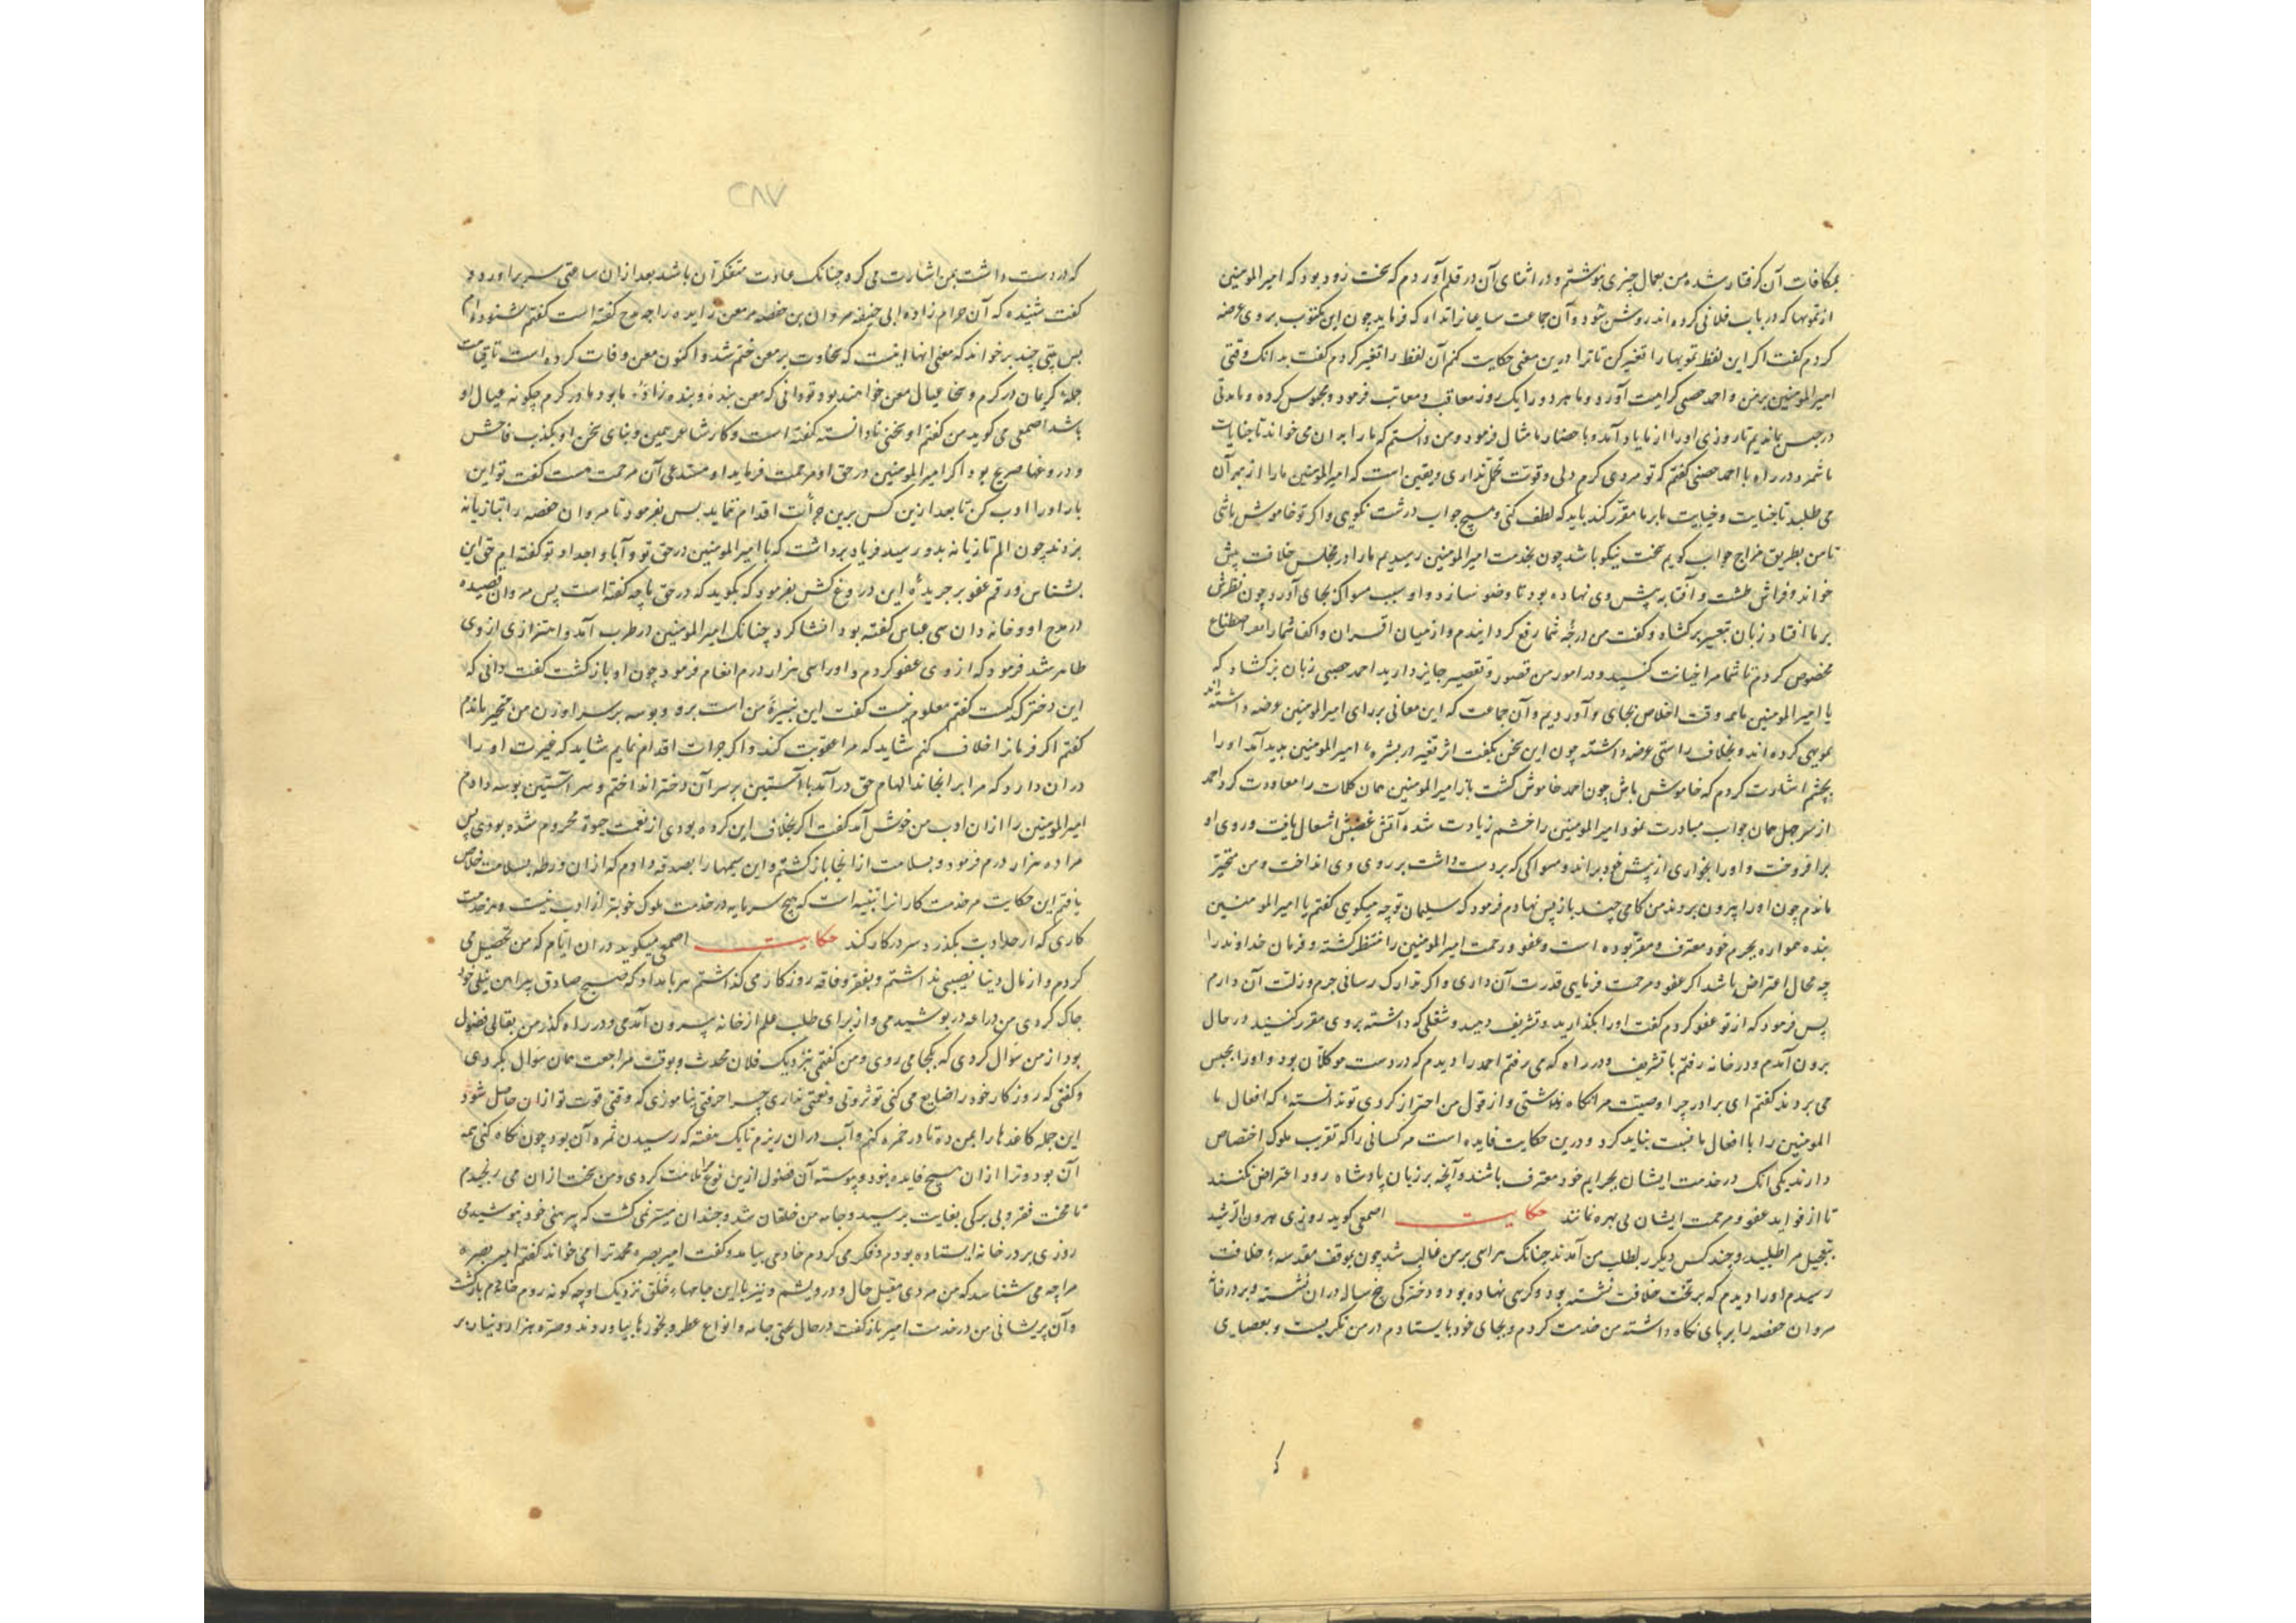 بمکافات آن گرفتار شده من بعمال چیزی نوشتم و در اثنای آن در قلم آوردم که سخت زود بود که امیرالمومنین
از تمویها که در باب فلانی کرده‌اند روشن شود و آن جماعت را فرماید چون این مکتوب بر وی عرضه
کردم گفت اگر این لفظ تمویها را تغییر کن تا ترا درین معنی حکایت کنم آن لفظ را تغییر کردم گفت بدانک وقتی
امیرالمومنین بر من و احمد کراهیت آورد و ما هر دو را یک روز معاقب و معاتب فرمود و محبوس کرده و مدتی
در حبس بماندیم تا روزی او را از ما یاد آمد و باحضار ما مثال فرمود و من دانستم که ما را بر آن می خواند تا جنایات
ما شمرد در راه با احمد گفتم که تو مردی گرم دلی و قوت تحمل نداری و یقین است که امیرالمومنین ما را از بهر آن
می طلبد تا جنایت و خیانت ما بر ما مقرر کند باید که لطف کنی و هیچ جواب درشت نگویی و اگر تو خاموش باشی
تا من بطریق مزاج جواب گویم سخت نیکو باشد چون بخدمت امیرالمومنین رسیدیم ما را در مجلس خلافت پیش
خواند و فراش طشت و آفتابه پیش وی نهاده بود تا وضو سازد و او سبب مسواک بجای آورد چون نظرش
بر ما افتاد زبان تعییر برگشاد و گفت من درجهٔ شما رفع گردانیدم و از میان اقران و اکفا شما را اصطناع
مخصوص کردم تا شما مرا خیانت کنید و در امور من قصور و تقصیر جایز دارید احمد زبان برگشاد که
یا امیرالمومنین ما همه وقت اخلاص بجای آوردیم و آن جماعت که این معانی بر رای امیرالمومنین عرضه داشته اند
تمویهی کرده‌اند و بخلاف راستی عرضه داشته چون این سخن بگفت اثر تغیر در بشره امیرالمومنین بدید آمد او را
بچشم اشارت کردم که خاموش باش چون احمد خاموش گشت باز امیرالمومنین همان کلمات را معاودت کرد احمد
از سر جهل همان جواب مبادرت نمود امیرالمومنین را خشم زیادت شد و آتش غضبش اشتعال یافت و روی او
برافروخت و او را بخواری از پیش خود براند و مسواکی که بر دست داشت بر روی وی انداخت و من متحیر
ماندم چون او را بیرون بردند من گامی چند باز پس نهادم فرمود که سلیمان تو چه میگویی گفتم یا امیرالمومنین
بنده همواره بجرم خود معترف و مقر بوده است و عفو و رحمت امیرالمومنین را منتظر گشته و فرمان خداوند را
چه مجال اعتراض باشد اگر عفو و مرحمت فرمایی قدرت آن داری و اگر تدارک رسانی جرم و زلت آن دارم
پس فرمود که از تو عفو کردم گفت او را بگذارید و تشریف دهید و شغلی که داشته بر وی مقرر کنید در حال
برون آمدم و در خانه رفتم با تشریف و در راه که می رفتم احمد را دیدم که در دست موکلان بود و او را بحبس
می بردند گفتم ای برادر چرا وصیت مرا نگاه نداشتی و از قول من احتراز کردی تو ندانسته که افعال با
المومنین را با افعال ما نسبت نباید کرد و درین حکایت فایده است مر کسانی را که تقرب ملوک اختصاص
دارند یکی آنک در خدمت ایشان بجرایم خود معترف باشند و آنچه بر زبان پادشاه رود اعتراض نکنند
تا از فواید عفو و مرحمت ایشان بی بهره نمانند حکایت اصمعی گوید روزی هرون الرشید
بتعجیل مرا طلبید و چند کس دیگر بطلب من آمدند چنانک هراسی بر من غالب شد چون بموقف مقدسه خلافت
رسیدم او را دیدم که بر تخت خلافت نشسته بود و کرسی نهاده بود و دخترکی پنج ساله در آن نشسته و بر در خانه
مروان حفصه را بر پای نگاه داشته من خدمت کردم و بجای خود بایستادم در من نگریست و بعصایی
٢٨٧
که در دست داشت بمن اشارت می کرد چنانک عادت متفکر آن باشد بعد از آن ساعتی سر برآورد و
گفت شنیده که آن حرام زاده ابی حفصه مروان بن حفصه مر معن زایده را چه مدح گفته است گفتم شنوده‌ام
پس بیتی چند برخواند که معنی آنها اینست که سخاوت بر معن ختم شد و اکنون معن وفات کرده است تا قیامت
جمله کریمان در کرم و سخا عیال معن خواهند بود تو دانی که معن بنده و بنده زاده ما بود ما در کرم چگونه عیال او
باشد اصمعی می گوید من گفتم او سخنی نادانسته گفته است و کار شاعر همین و بنای سخن او بکذب فاحش
و دروغها صریح بود اگر امیرالمومنین در حق او مرحمت فرماید او مستدعی آن مرحمت هست گفت تو این
بار او را ادب کن تا بعد ازین کس برین جرأت اقدام ننماید پس بفرمود تا مروان حفصه را بتازیانه
بزدند چون الم تازیانه بدو رسید فریاد برداشت که یا امیرالمومنین در حق تو و آبا و اجداد تو گفته‌ام حق این
بشناس و رقم عفو بر جریدهٔ این دروغ کش بفرمود که بگوید که در حق ما چه گفته است پس مروان قصیده
در مدح او و خاندان بنی عباس گفته بود انشا کرد چنانک امیرالمومنین در طرب آمد و اهتزازی از وی
ظاهر شد فرمود که از وی عفو کردم و او را سی هزار درم انعام فرمود چون او بازگشت گفت دانی که
این دخترک کیست گفتم معلوم نیست گفت این نبیرهٔ من است برو و بوسه بر سر او زن من متحیر ماندم
گفتم اگر فرمانرا خلاف کنم شاید که مرا عقوبت کند و اگر جرات اقدام نمایم شاید که غیرت او را
در آن دارد که مرا برنجاند الهام حق درآمد با آستین بر سر آن دختر انداختم و سر آستین بوسه دادم
امیرالمومنین را از آن ادب من خوش آمد گفت اگر بخلاف این کرده بودی از نعمت حیوة محروم شده بودی پس
مرا ده هزار درم فرمود و بسلامت از آنجا بازگشتم و این سیمها را بصدقه دادم که از آن ورطه بسلامت خلاص
یافتم این حکایت مر خدمت کارانرا تنبیه است که هیچ سرمایه در خدمت ملوک خوبتر از ادب نیست و هر خدمت
کاری که از حد ادب بگذرد سر در کار کند حکایت اصمعی میگوید در آن ایام که من تحصیل می
کردم و از مال دنیا نصیبی نداشتم و بفقر و فاقه روزگار می گذاشتم هر بامداد که صبح صادق پیراهن نیلی خود
چاک کردی من دراعه در پوشیدمی و از برای طلب علم از خانه بیرون آمدمی و در راه گذر من بقالی فضول
بود از من سوال کردی که بکجا می روی و من گفتمی بنزدیک فلان محدث و بوقت مراجعت همان سوال بکردی
و گفتی که روزگار خود را ضایع می کنی تو ثروتی و نعمتی نداری چرا حرفتی نیاموزی که وقتی قوت تو از آن حاصل شود
این جمله کاغذها را بمن ده تا در خمره کنم و آب در آن ریزم تا یک هفته که رسیدن ثمره آن بود چون نگاه کنی همه
آن بود و ترا از آن هیچ فایده نبود و پیوسته آن فضول ازین نوع مرا ملامت کردی و من سخت از آن می رنجیدم
تا سخت فقر و بی برگی بغایت برسید و جامه من خلقان شد و چندان میسر نمی گشت که پیرهنی خود بپوشیدمی
روزی بر در خانه ایستاده بودم و فکر می کردم خادمی بیامد و گفت امیر بصره محمد ترا می خواند گفتم امیر بصره
مرا چه می شناسد که من مردی مقبل حال و درویشم و نیز با این جامهاء خلق نزدیک او چگونه روم خادم بازگشت
و آن پریشانی من در خدمت امیر باز گفت در حال تختی جامه و انواع عطر و بخورها بیاوردند و صره هزار دینار بر